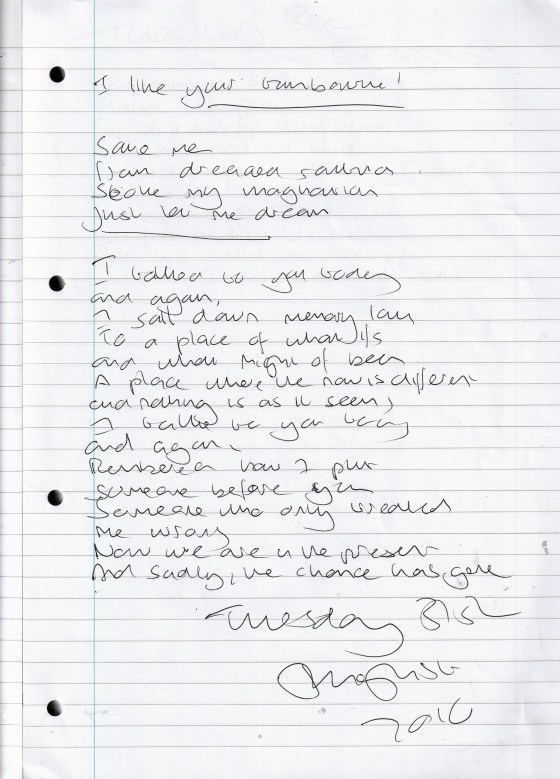 I like your
Save me
From
my imagination
Just let me dream
I talked to you today
and again,
I sail down memory lane
To a place of what if's
and what might of been
A place where the now is different
and nothing is as it seems,
I talked to you today
and again.
Remembered how I put
someone before you
Someone who only treated
me wrong
Now we are in the present
And sadly, the chance has gone
Tuesday 31st
August
2010